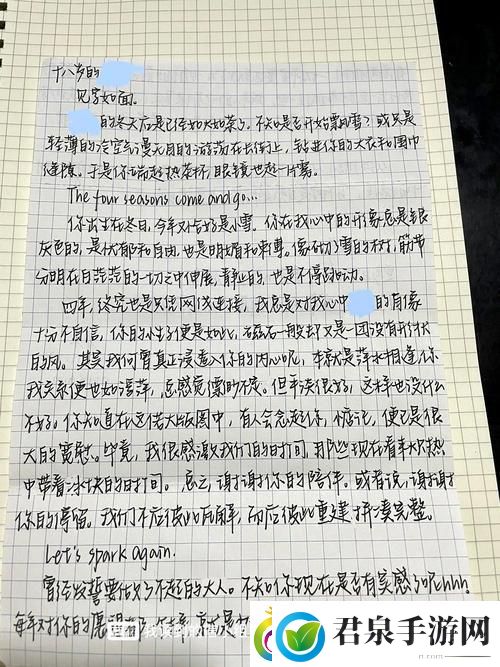 十八岁的
见字如面。
的冬天应是已经如火如荼了。不知是否开始飘雪？或只是
轻薄的冷空气漫无目的游荡在长街上，钻进你的大衣和围巾
缝隙。于是你端起热茶杯，眼镜也起一片雾。
The four seasons come and go...
你出生在冬日，今年又恰好是小雪。你在我心中的形象总是银
灰色的，是忧郁和自由，也是明媚和柬。像初雪的树，筋节
分明在白茫茫的一切之中伸展，静止的，也是不得动。
四年，终究也是只凭网线连接，我总是对我心中的肖像
十分不自信，你的性子便是如此，磁石一般却又是一团没有形状
的风。其实我何曾真正浸透入你的内心呢，本就是萍水相逢，你
我关系便也如浮萍，总感觉飘昳不定。但平淡很好，这样也没什么
不好。你知道在这偌大版图中，有人会念起你，惦记，便已是很
大的宽慰。毕竟，我很感激我们的时间，那些现在看来水热
中带着冰块的时间。总之，谢谢你的陪伴。或者说，谢谢
你的停留。我们不启彼此瓦解，而启彼此重建拼凑完整。
Let's spark again.
曾经发誓要做了不起的大人。不知你现在是否有实感了呢hhh。
每年对你的愿望
君泉手游网